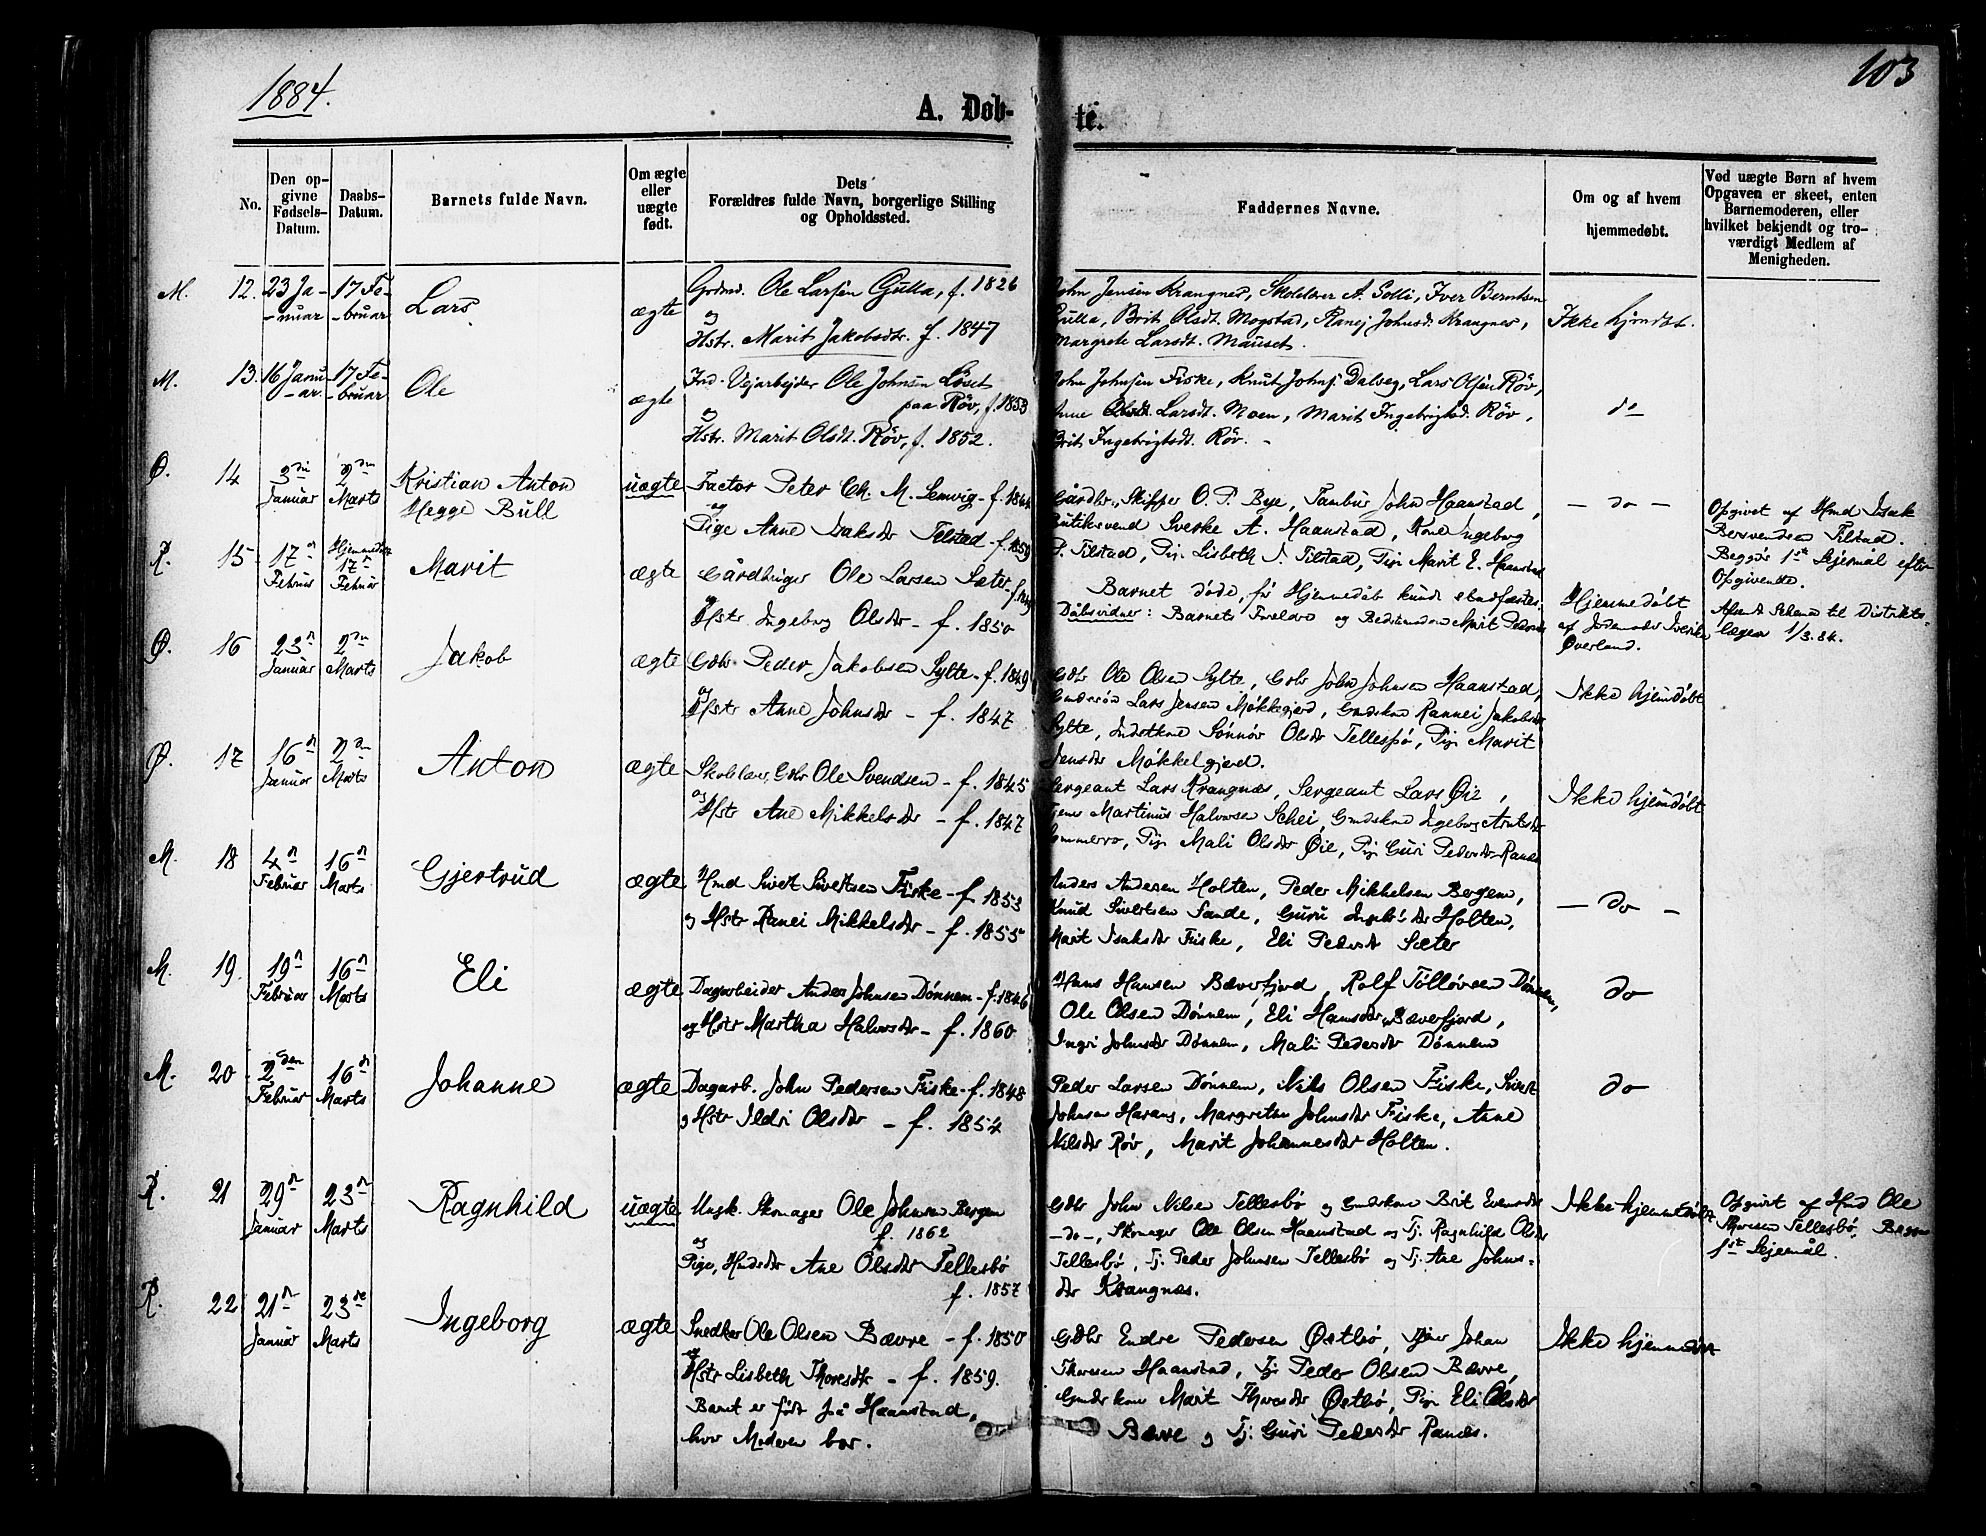 1884.
103
A. Døb-
te.
No.
Den op-
givne
Fødsels-
Datum.
Daabs-
Datum.
Barnets fulde Navn.
Om ægte
eller
uægte
født.
Dets
Forældres fulde Navn, borgerlige Stilling
og Opholdssted.
Faddernes Navne.
Om og af hvem
hjemmedøbt.
Ved uægte Børn af hvem
Opgaven er skeet, enten
Barnemoderen, eller
hvilket bekjendt og tro-
værdigt Medlem af
Menigheden.
M. 12. 23 Ja-
-nuar
17 Fe-
-bruar
Lars
ægte
Grdmd. Ole Larsen Gulla, f. 1826
og
Hstr. Marit Jakobsdtr. f. 1847
John Jensen Krangnes, Skolelærer A. Solli, Iver Berntsen
Gulla, Brit Olsdt. Mogstad, Ranej Johnsd. Krangnes,
Margrete Larsdt. Mauset.
Ikke hjmdbt.
M. 13. 16 Janu-
ar.
17 Fe-
bruar
Ole
ægte
Ind. Vejarbejder Ole Johnsen Løset
paa Røv, f. 1853
og
Hstr. Marit Olsdt. Røv, f. 1852.
John Johnsen Fiske, Knut Johns. Dalseg, Lars Olsen Røv,
Anne Larsdt. Moen, Marit Ingebrigtsd. Røv,
Brit Ingebrigtsdt. Røv. -
do
Ø. 14 3die
Januar
2den
Marts
Kristian Anton
Hegge Bull
uægte
Factor Peter Ch. M. Lemvig - f. 1844
og
Pige Anne Isaksdr Tilstad - f. 1859
Gårdbr., Skipper O. P. Bye, Tambur John Haanstad,
Butiksvend Sverke A. Haanstad, Kone Ingeborg
P. Tilstad, Pige Lisbeth I. Tilstad, Pige Marit E. Haanstad
- do -
Opgivet af Hmd Isak
Bersvendsen Tilstad.
Begges 1st Lejermål efter
Opgivende.
R. 15 17n
Februar
Hjemmedøbt
17n
Februar
Marit
ægte
Gårdbruger Ole Larsen Sæter -
og
Hstr Ingeborg Olsdr - f. 1850
Barnet døde, før Hjemmedåb kunde stadfæstes.
Dåbsvidner: Barnets Forældre og Bedstemoder Marit Pedersdr
Hjemmedøbt
af Jordemoder
Øverland.
Afsendt Schema til Distrikts-
lægen 1/3. 84.
Ø. 16 23n
Januar
2den
Marts
Jakob
ægte
Gdbr Peder Jakobsen Sylte - f. 1849
og
Hstr Anne Johnsdr - f. 1847
Gdbr Ole Olsen Sylte, Gdbr John Johnsen Haanstad,
Lars Jensen Møkkelgjerd, Gmdskone Rannei Jakobsdr
Sylte, Indstkone Sønnøv Olsdr Tellesbø, Pige Marit
Jensdr Møkkelgjerd.
Ikke hjemdøbt
Ø. 17 16n
Januar
2den
Marts
Anton
ægte
Skolelærer, Gdbr Ole Svendsen - f. 1845
og
Hstr Ane Mikkelsdr - f. 1847
Sergeant Lars Krangnæs, Sergeant Lars Øie,
Tjener Martinus Halvorsen Schei, Gmdskone Ingeborg Arntsdr
Pige Mali Olsdr Øie, Pige Guri Pedersdr Ranes
Ikke hjemdøbt
M. 18 4n
Februar
16n
Marts
Gjertrud
ægte
Hmd Sivert Sivertsen Fiske - f. 1853
og Hstr Ranei Mikkelsdr - f. 1855
Anders Andersen Holten, Peder Mikkelsen Bergem,
Knud Sivertsen Sande, Guru Ingebr.dr Holten,
Marit Isaksdr Fiske, Eli Pedersdr Sæter
- do -
M. 19. 19n
Februar
16n
Marts
Eli
ægte
Dagarbeider Anders Johnsen Dønnem - f. 1846
og Hstr Martha Halvorsdr - f. 1860
Hans Hansen Bæverfjord, Rolf Tølløvsen Dønnem,
Ole Olsen Dønnem, Eli Hansdr Bæverfjord,
Ingri Johnsdr Dønnem, Mali Pedersdr Dønnem
do
M. 20 2den
Februar
16n
Marts
Johanne
ægte
Dagarb. John Pedersen Fiske - f. 1848
og Hstr Ildri Olsdr - f. 1854
Peder Larsen Dønnem, Nils Olsen Fiske, Sivert
Johnsen Harang, Margrethe Johnsdr Fiske, Anne
Nilsdr Røv, Marit Johannesdr Holten.
do
R. 21 29n
Januar
23n
Marts
Ragnhild
uægte
Ungk. Skomager Ole Johnsen Bergem
f. 1862
og
Pige, Hmdsdr Ane Olsdr Tellesbø
f. 1857
Gdbr John Nilsen Tellesbø og Gmdskone Brit Evensdr
-do-, Skomager Ole Olsen Haanstad og Tj. Ragnhild Olsdr
Tellesbø, Tj. Peder Johnsen Tellesbø og Tj. Ane Johns-
dr Krangnæs.
Ikke hjemmedøbt
Opgivet af Hmd Ole
Thoresen Tellesbø. Begges
1st Lejermål.
R. 22 21n
Januar
23de
Marts
Ingeborg
ægte
Snedker Ole Olsen Bævre - f. 1850
og
Hstr Lisbeth Thoresdtr - f. 1859.
Barnet er født på Haanstad,
hvor Moderen bor.
Gdbr Endre Pedersen Østbø, Johan
Thoresen Haanstad, Tj. Peder Olsen Bævre,
Gmdskone Marit Thoresdr Østbø, Pige Eli Olsdr
Bævre og Tj. Guri Pedersdr Ranæs.
Ikke hjemmedøbt